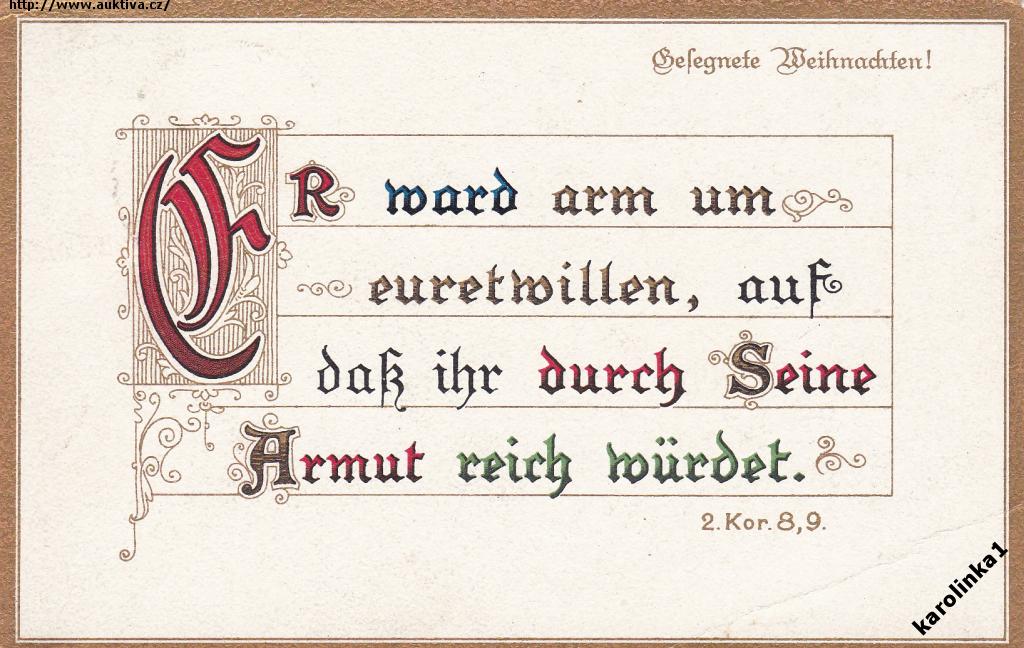 http://www.auktiva.cz/
Gesegnete Weihnachten!
ER ward arm um
euretwillen, auf
daß ihr durch Seine
Armut reich würdet.
2. Kor. 8,9.
karolinka1